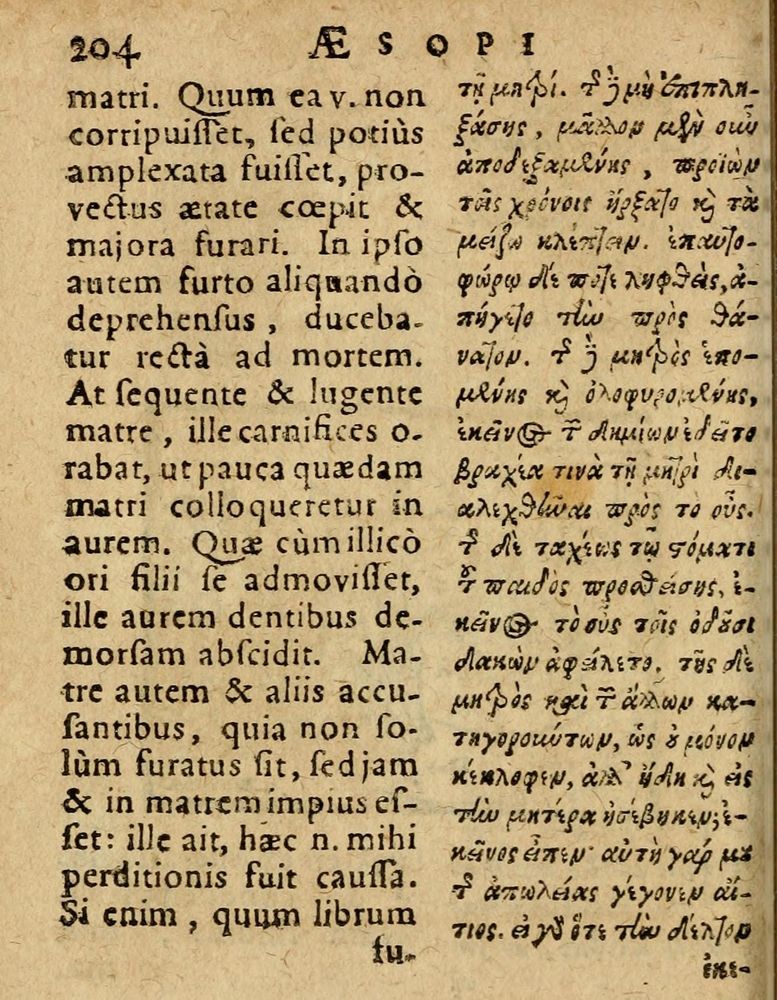 204 ÆSOPI
matri. Quum ea v. non
corripuiſſet, ſed potiùs
amplexata fuiſſet, pro-
vectus ætate cœpit &
majora furari. In ipſo
autem furto aliquandò
deprehenſus, duceba-
tur rectà ad mortem.
At ſequente & lugente
matre, ille carnifices o-
rabat, ut pauca quædam
matri colloqueretur in
aurem. Quæ cùm illicò
ori filii ſe admoviſſet,
ille aurem dentibus de-
morſam abſcidit. Ma-
tre autem & aliis accu-
ſantibus, quia non ſo-
lùm furatus ſit, ſed jam
& in matrem impius eſ-
ſet: ille ait, hæc n. mihi
perditionis fuit cauſſa.
Si enim, quum librum
fu-
τῇ μητρί. τῆς δὲ μὴ ἐπιπλη-
ξάσης, μᾶλλον μὲν οὖν
ἀποδεξαμένης, προϊὼν
τοῖς χρόνοις ἤρξατο καὶ τὰ
μείζω κλέπτειν. ἐπαυτο-
φώρῳ δέ ποτε ληφθεὶς, ἀ-
πήγετο τὴν πρὸς θά-
νατον. τῆς δὲ μητρὸς ἑπο-
μένης καὶ ὀλοφυρομένης,
ἐκεῖνος τῶν δημίων ἐδεῖτο
βραχέα τινὰ τῇ μητρὶ δι-
αλεχθῆναι πρὸς το οὖς.
τῆς δὲ ταχέως τῷ στόματι
τοῦ παιδὸς προσθείσης, ἐ-
κεῖνος τὸ οὖς τοῖς ὀδοῦσι
δακὼν ἀφείλετο. τῆς δὲ
μητρὸς καὶ τῶν ἄλλων κα-
τηγορούντων, ὡς οὐ μόνον
κέκλοφεν, ἀλλ' ἤδη καὶ εἰς
τὴν μητέρα ἠσέβηκεν; ἐ-
κεῖνος εἶπεν· αὐτὴ γάρ μοι
τῆς ἀπωλείας γέγονεν αἴ-
τιος. εἰ γὰρ ὅτε τὴν δέλτον
ἐκε-